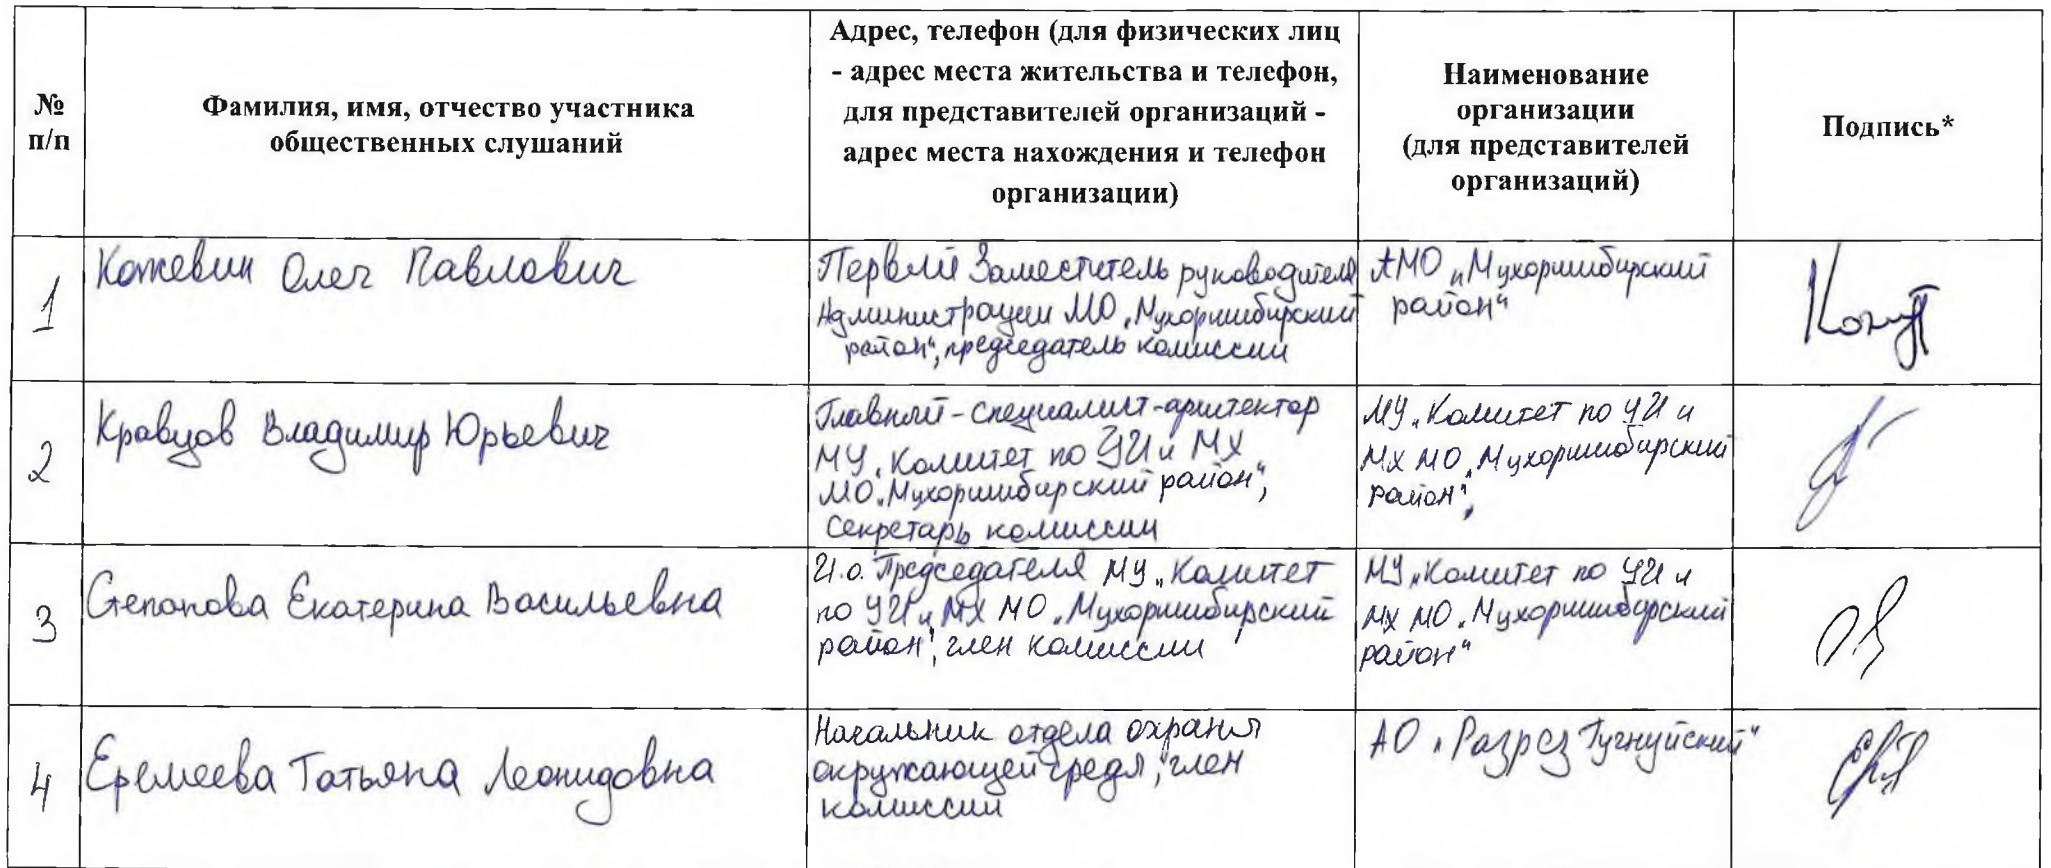 №
п/п
Фамилия, имя, отчество участника
общественных слушаний
Адрес, телефон (для физических лиц
- адрес места жительства и телефон,
для представителей организаций -
адрес места нахождения и телефон
организации)
Наименование
организации
(для представителей
организаций)
Подпись*
1
Кожевин Олег Павлович
Первый Заместитель руководителя
Администрации МО „Мухоршибирский
район", председатель комиссии
АМО „Мухоршибирский
район"
2
Кравцов Владимир Юрьевич
Главный-специалист-архитектор
МУ „Комитет по УИ и МХ
МО „Мухоршибирский район",
Секретарь комиссии
МУ „Комитет по УИ и
МХ МО „Мухоршибирский
район",
3
Степанова Екатерина Васильевна
И.о. Председателя МУ „Комитет
по УИ и МХ МО „Мухоршибирский
район", член комиссии
МУ „Комитет по УИ и
МХ МО „Мухоршибирский
район"
4
Еремеева Татьяна Леонидовна
Начальник отдела охраны
окружающей среды", член
комиссии
АО „Разрез Тугнуйский"